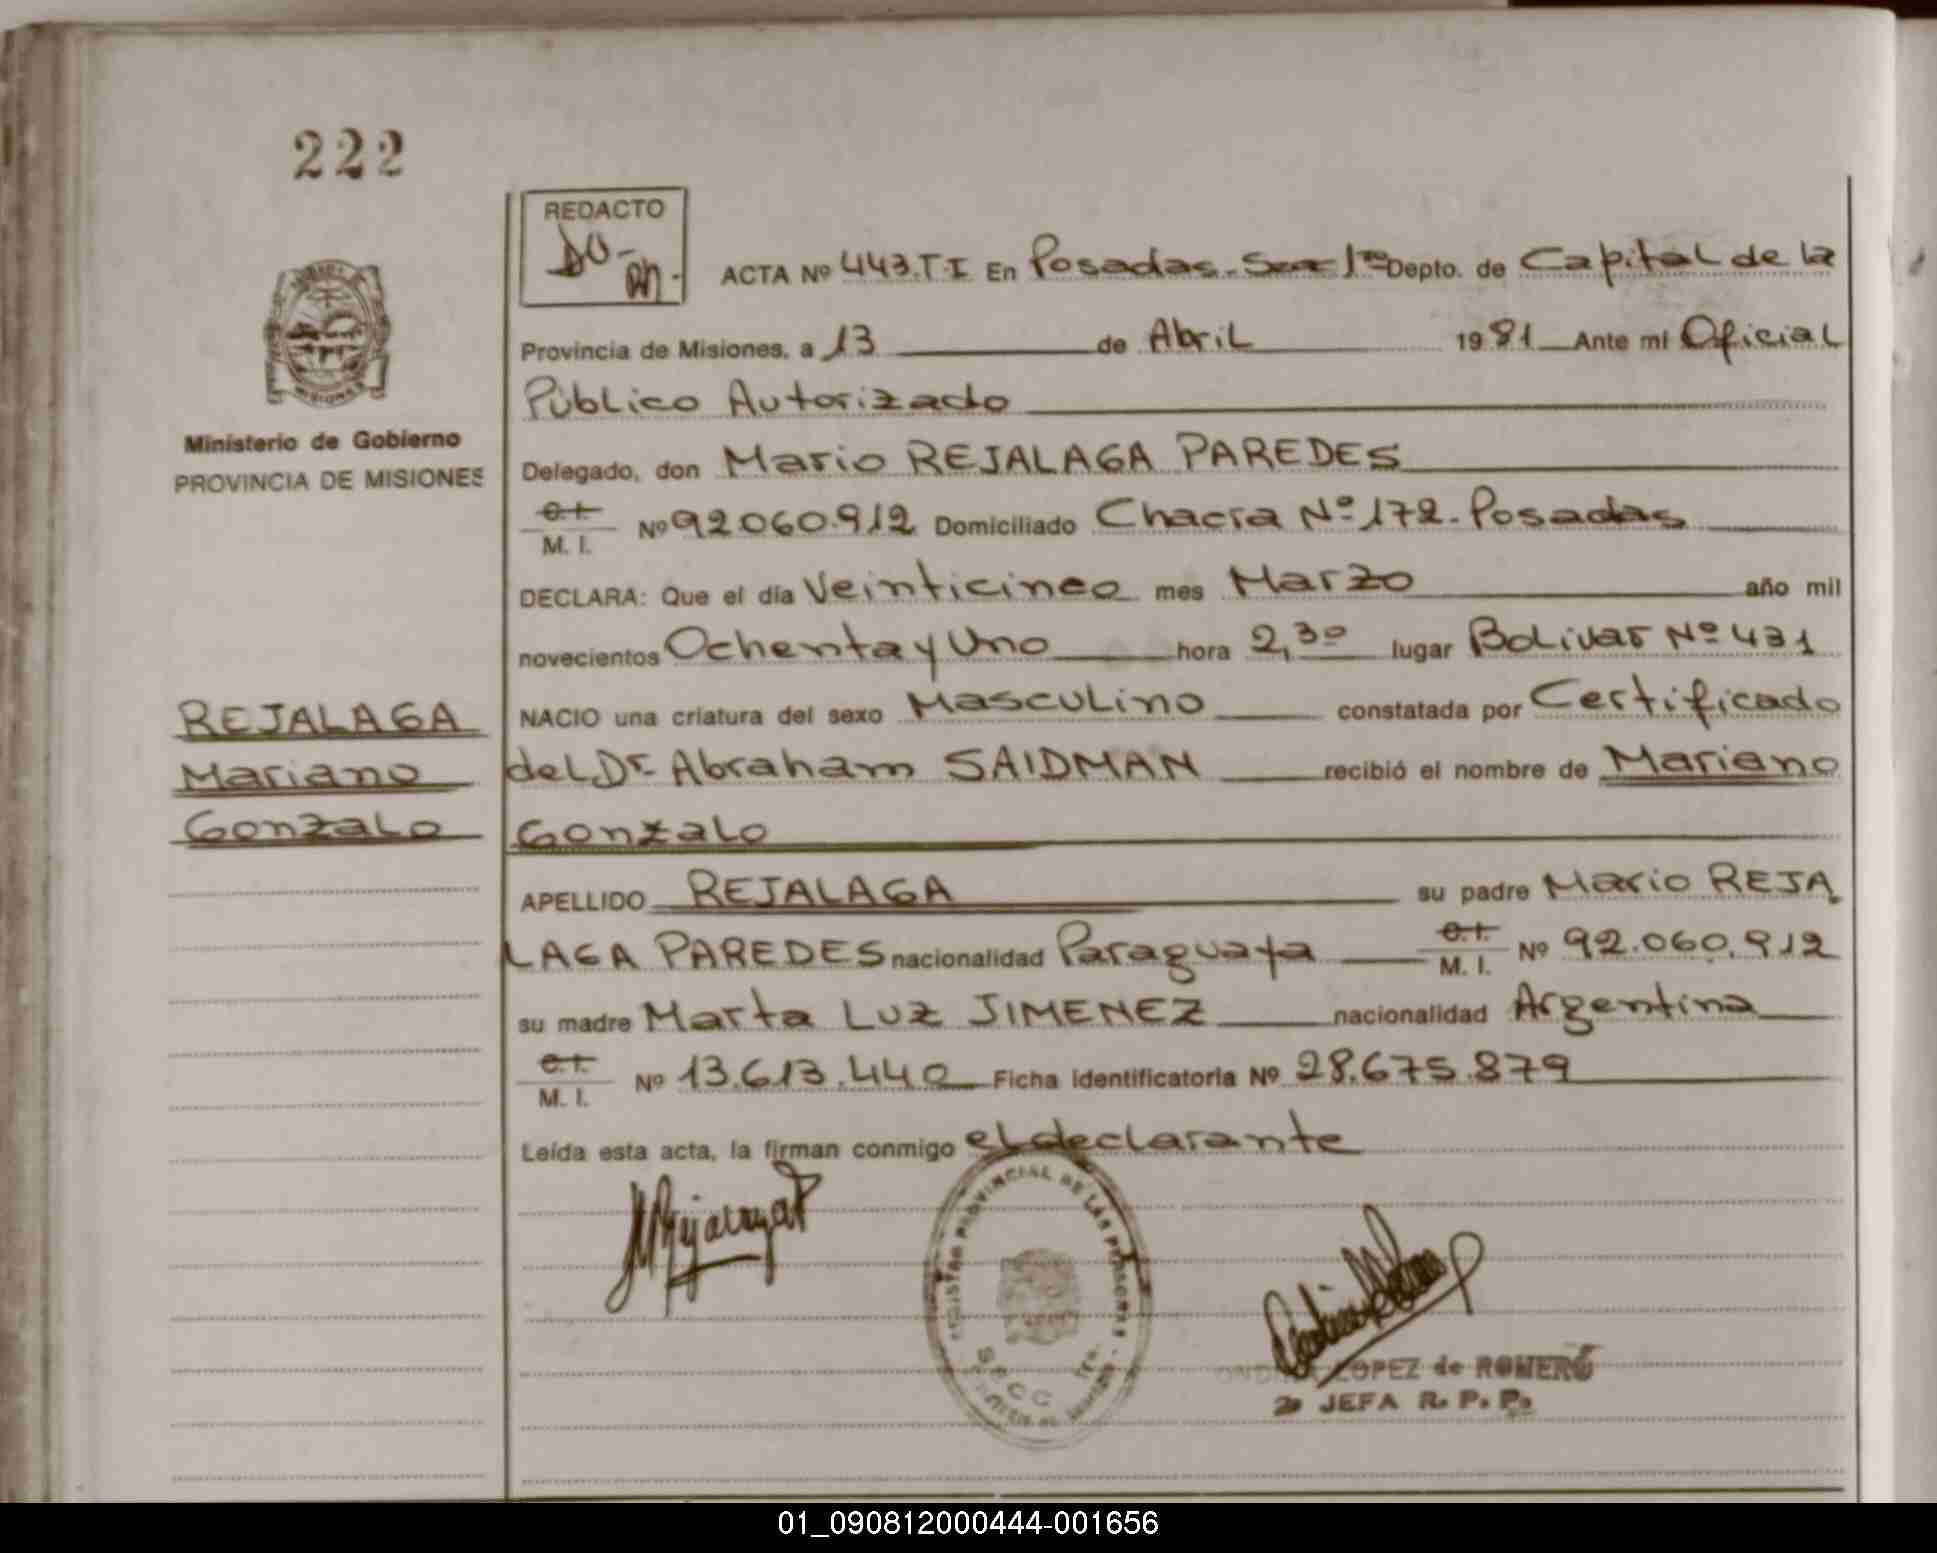 222
REDACTO
ACTA Nº 443.T.I En Posadas. Sec 1ra Depto. de Capital de la
Provincia de Misiones, a 13 de Abril 1981 Ante mi Oficial
Público Autorizado
Ministerio de Gobierno
PROVINCIA DE MISIONES
Delegado, don Mario REJALAGA PAREDES
C.I.
M. I. Nº 92060.912 Domiciliado Chacra Nº 172. Posadas
DECLARA: Que el día Veinticinco mes Marzo año mil
novecientos Ochenta y Uno hora 2,30 lugar Bolivar Nº 431
REJALAGA
Mariano
Gonzalo
NACIO una criatura del sexo Masculino constatada por Certificado
del Dr. Abraham SAIDMAN recibió el nombre de Mariano
Gonzalo
APELLIDO REJALAGA su padre Mario REJA
LAGA PAREDES nacionalidad Paraguaya C.I. M. I. Nº 92.060.912
su madre Marta LUZ JIMENEZ nacionalidad Argentina
C.I.
M. I. Nº 13.613.440 Ficha identificatoria Nº 28.675.879
Leída esta acta, la firman conmigo el declarante
REGISTRO PROVINCIAL DE LAS PERSONAS
LOPEZ de ROMERO
JEFA R. P. P.
01_090812000444-001656